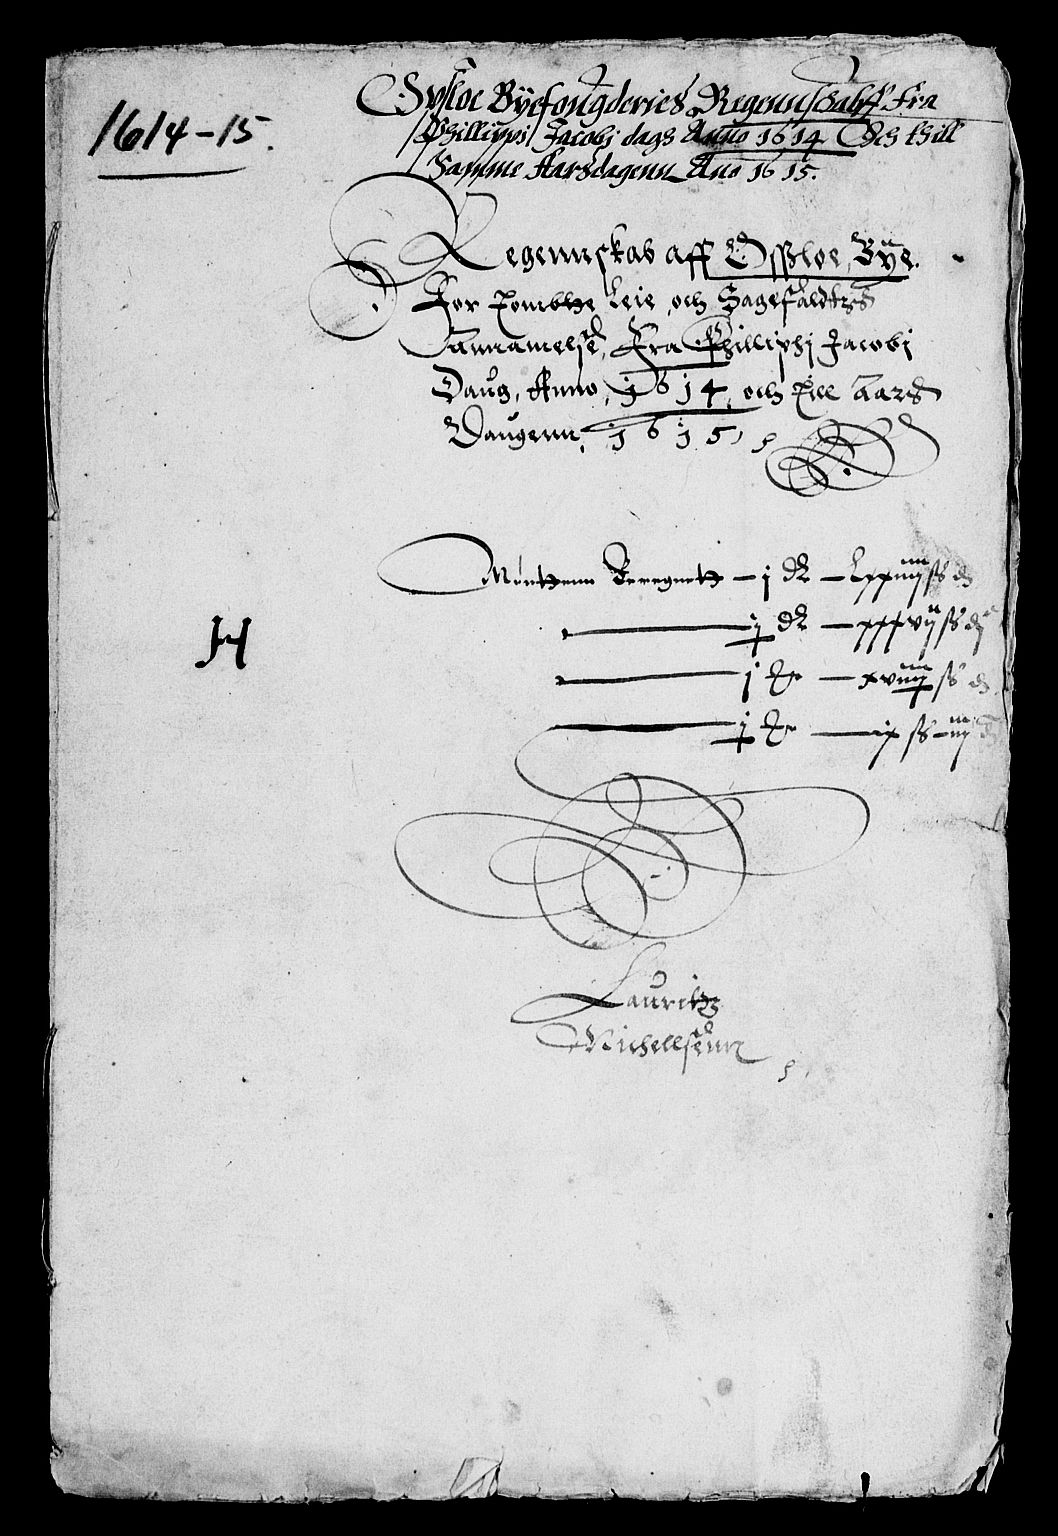 1614-15.
Opsloe Byefougderies Regennschabff Fra
Phillippi Jacobi dags Anno 1614 Och thill
Samme Aarsdagenn Ano 1615.
Regennskab aff Opsloe Bye.
For Tombtte Leie, och Sagefaldtzs
Annamelse, Fra Philliphj Jacobj
Daug, Anno, 1614, och Till Aars
Daugenn, 1615,
H
Mønttenn Beregnett – j dr – Lxxiiij ss
j dr – xxxvij ss
j – xviij ss
j – ix ss – iij
Lauritz
Michellsenn